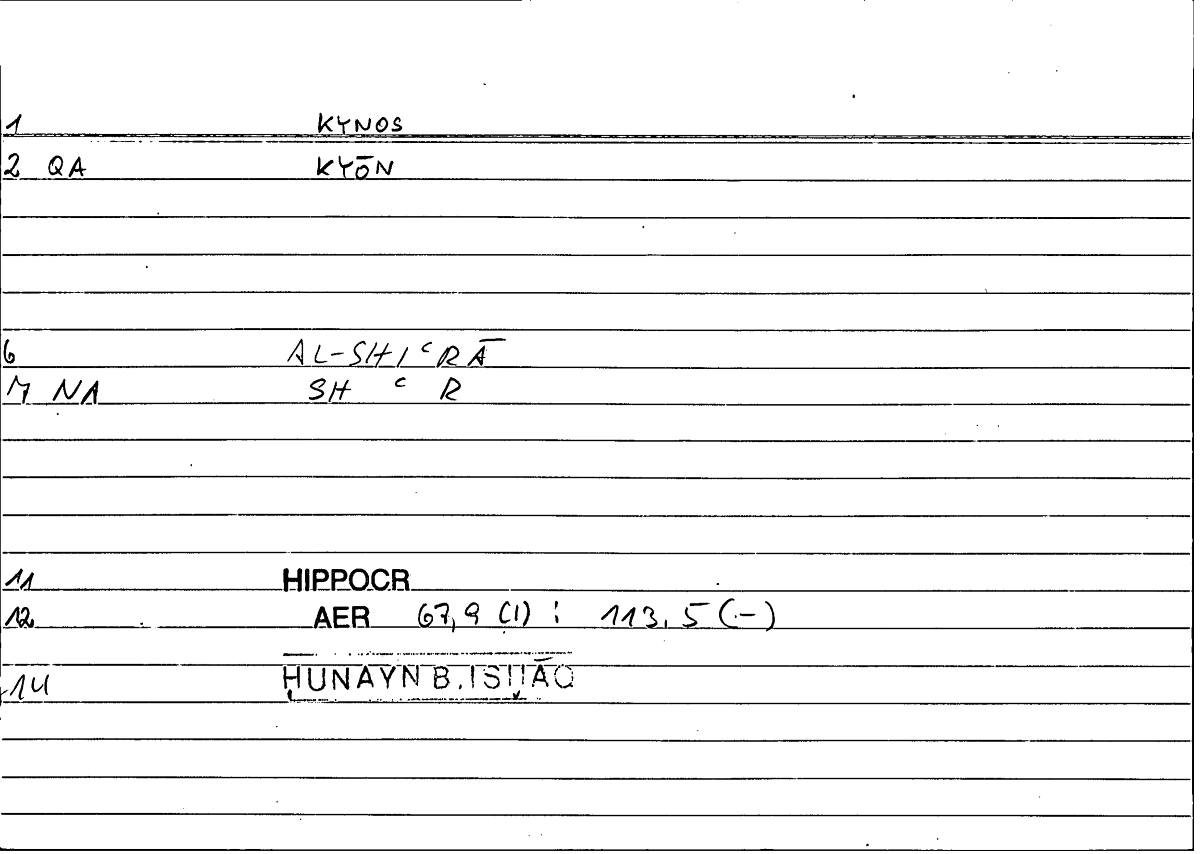 1 KYNOS
2 QA KYŌN
6 AL-SHIᶜRĀ
7 NA SH ᶜ R
11 HIPPOCR
12 AER 67,9 (1) : 113,5 (-)
14 ḤUNAYN B. ISḤĀQ